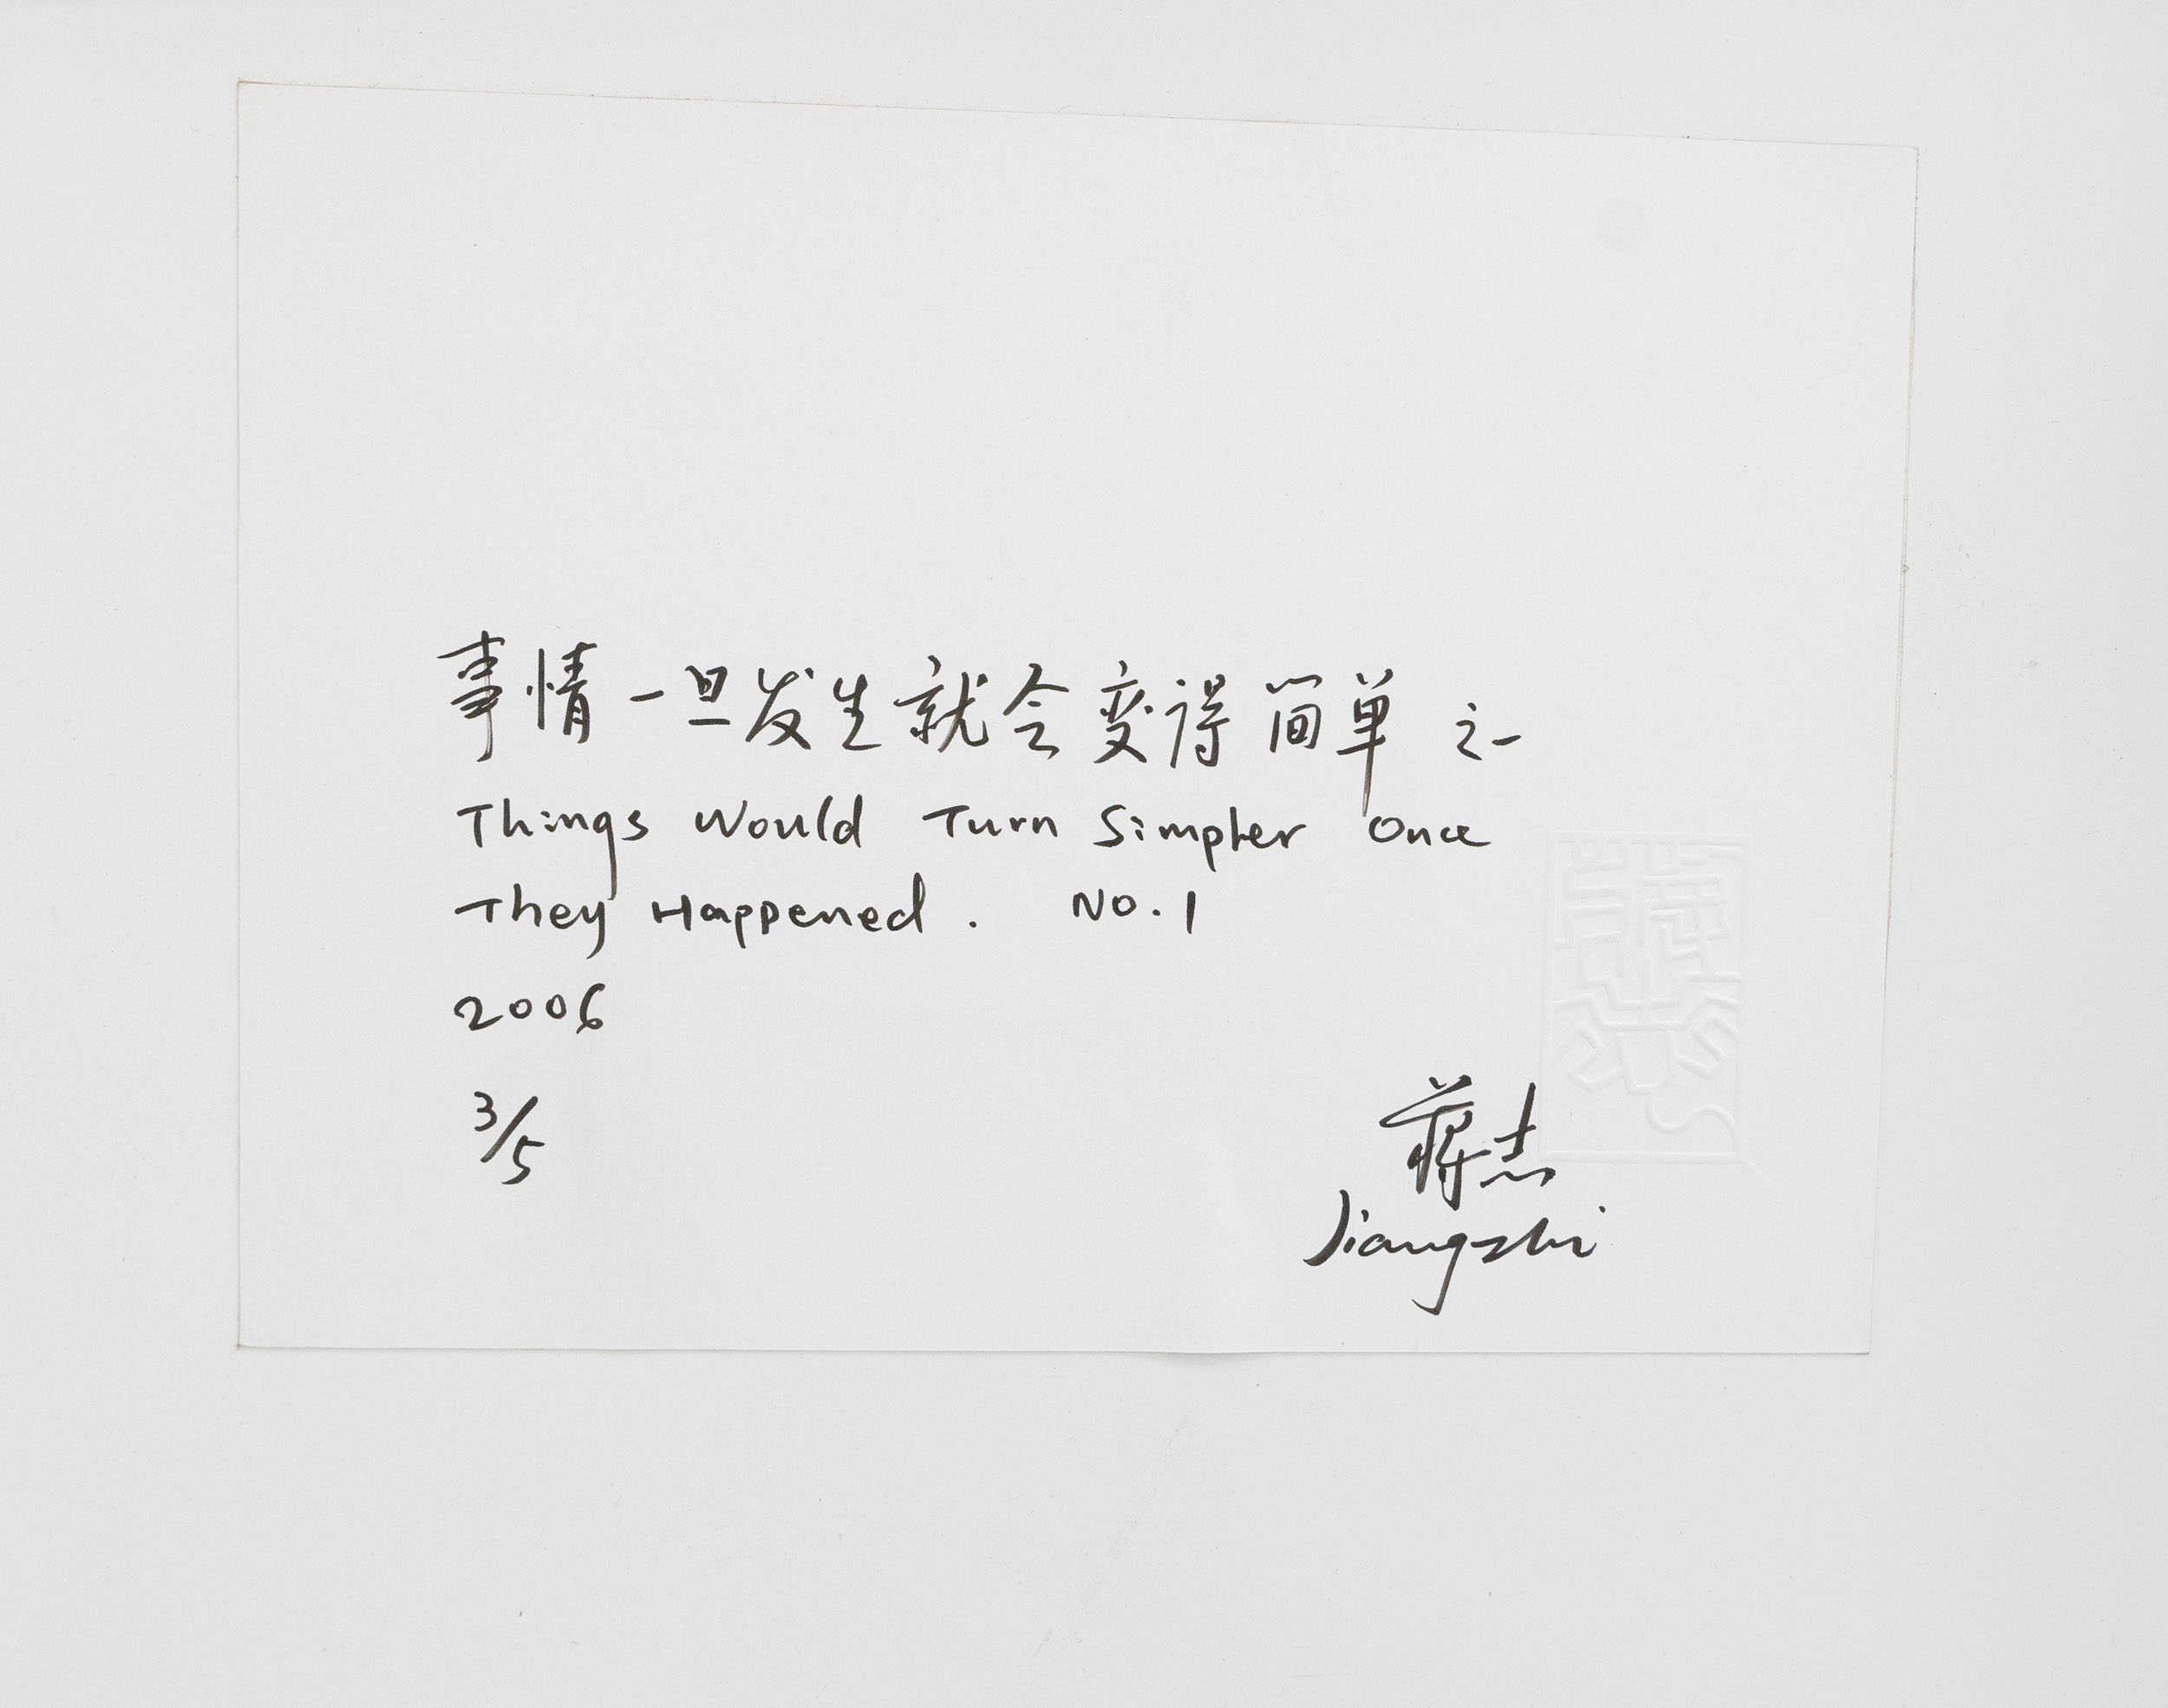 事情一旦发生就会变得简单 之一
Things Would Turn Simpler Once
They Happened. No.1
2006
3/5
蒋志
Jiangzhi